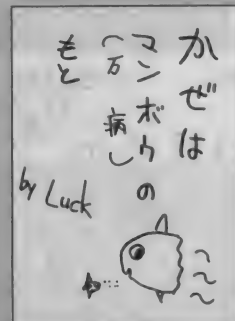 かぜは
マンボウの
(万病し
もと
by Luck